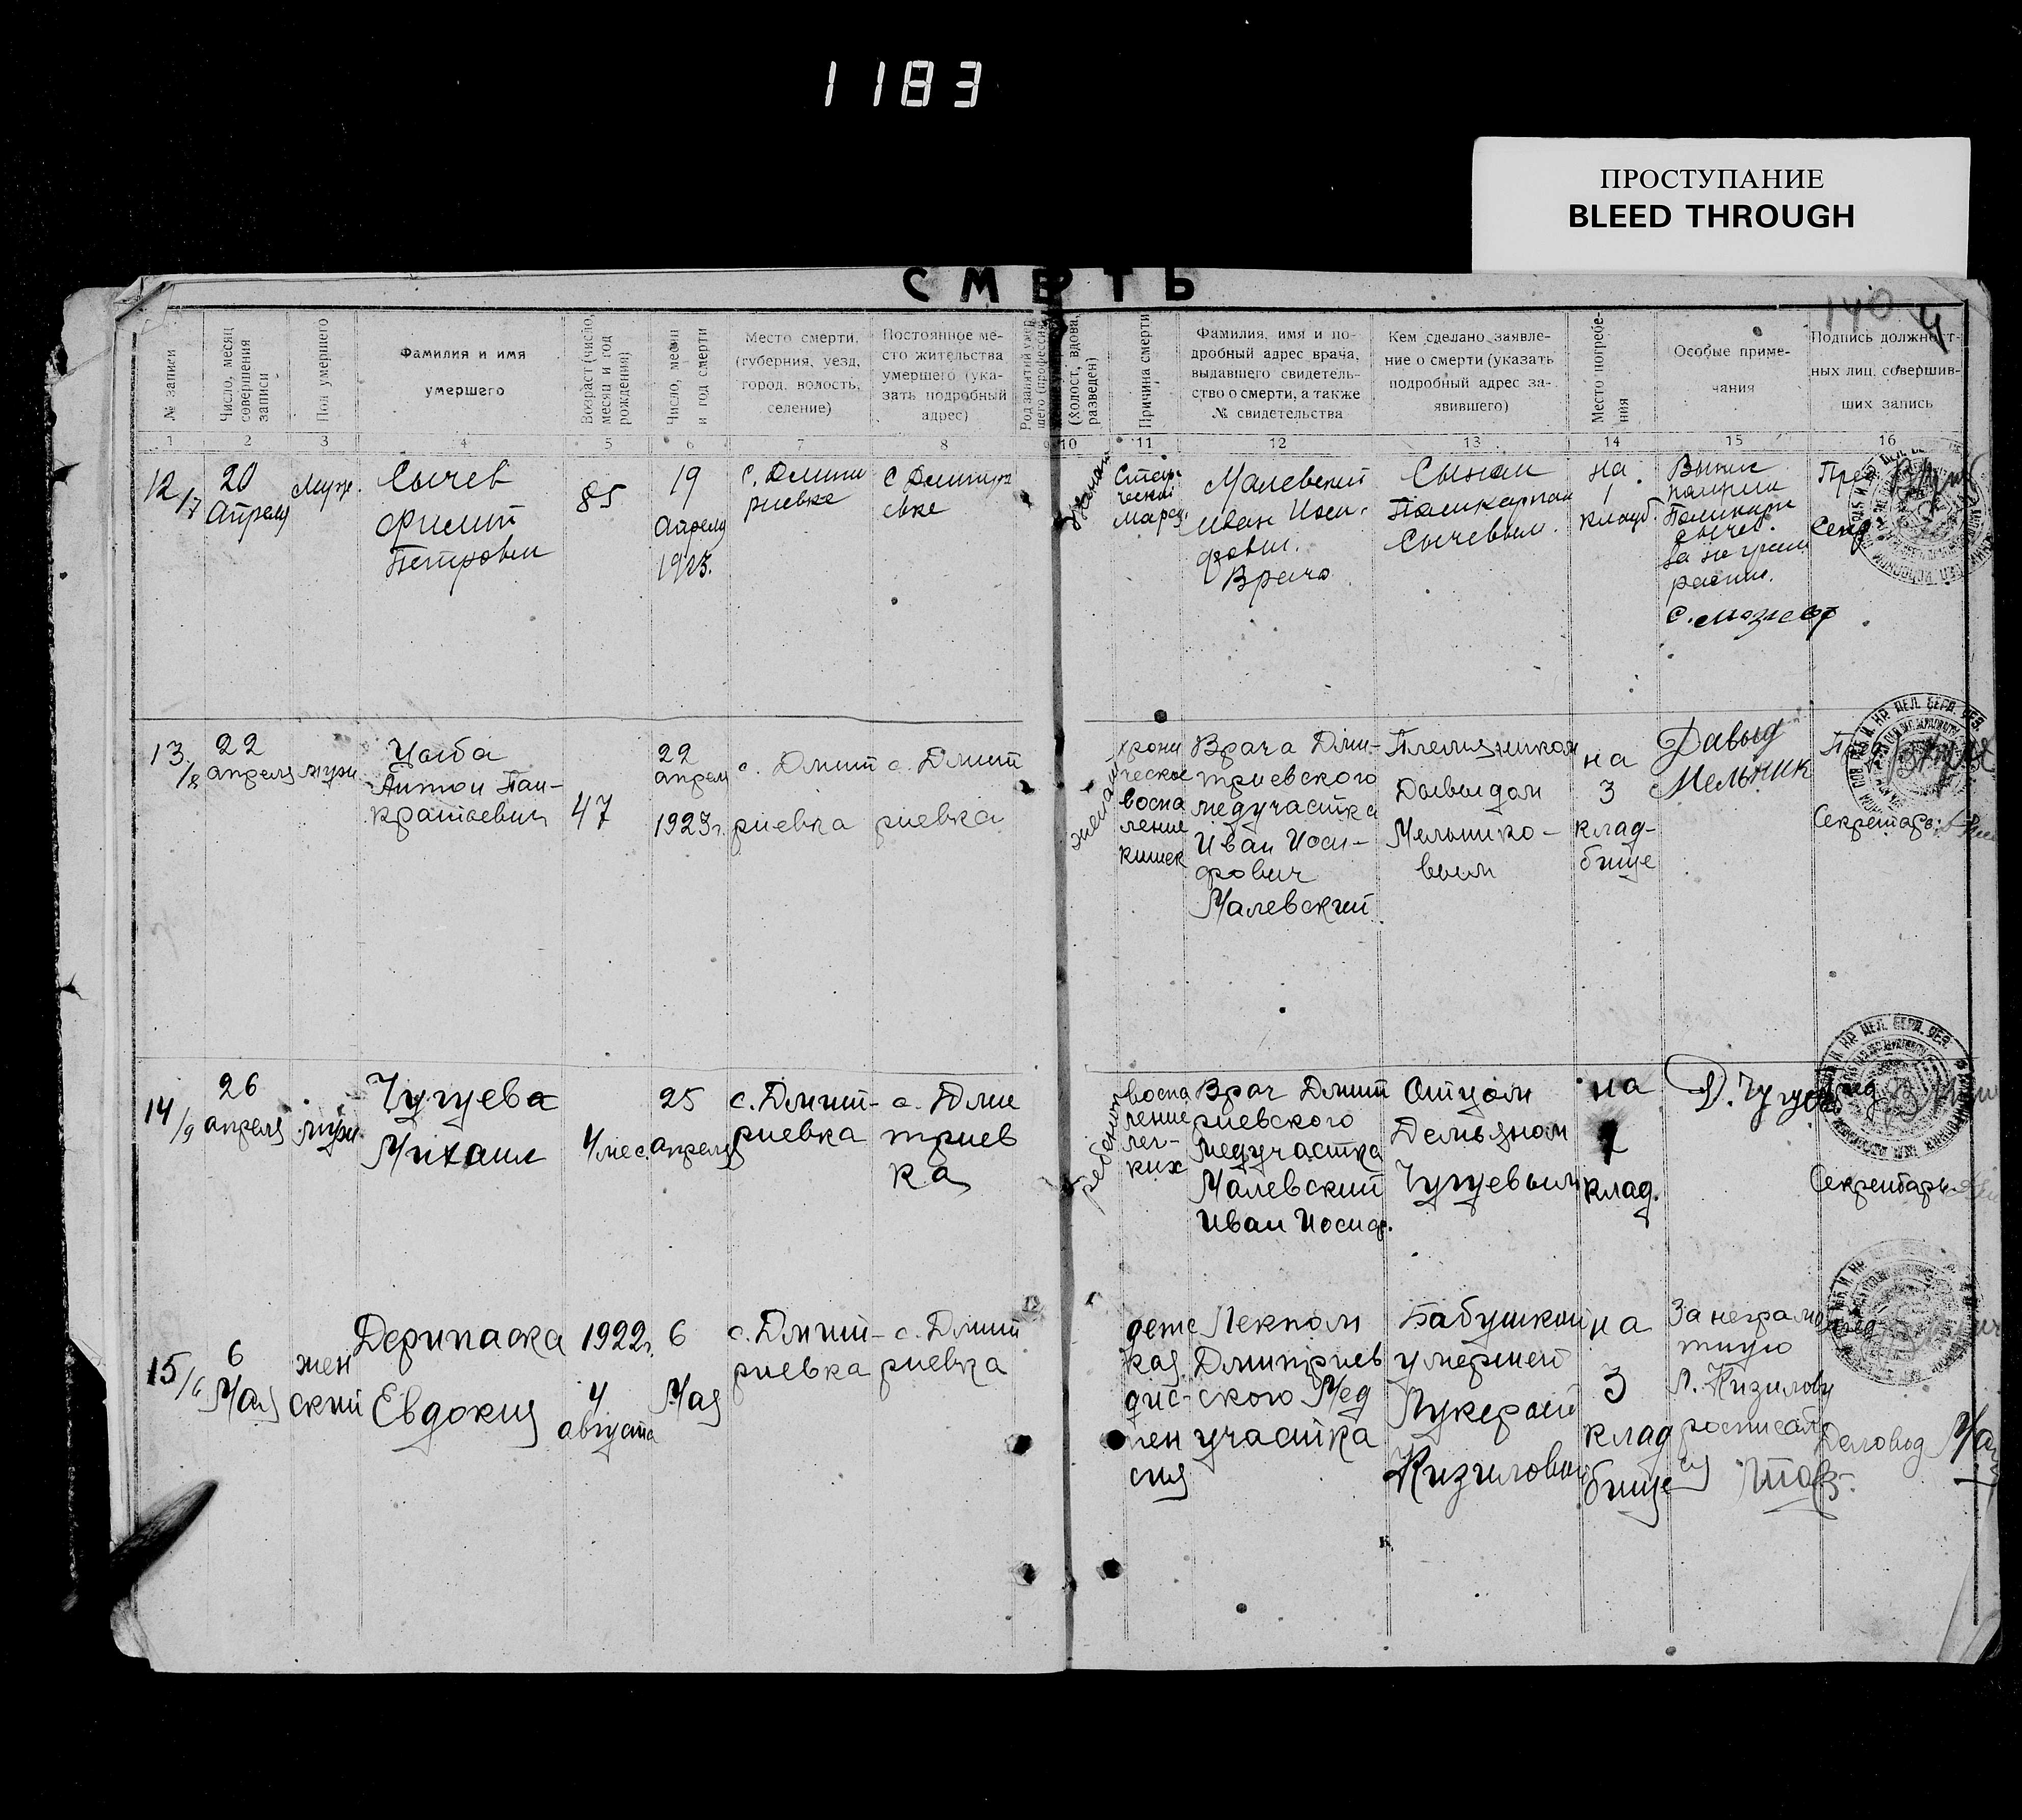 1183
ПРОСТУПАНИЕ
BLEED THROUGH
СМЕРТЬ
140
4
№ записи
Число, месяц
совершения
записи
Пол умершего
Фамилия и имя
умершего
Возраст (число,
месяц и год
рождения)
Число, месяц
и год смерти
Место смерти,
(губерния, уезд,
город, волость,
селение)
Постоянное ме-
сто жительства
умершего (ука-
зать подробный
адрес)
Род занятий умер
шего (професси
(холост, вдова,
разведен)
Причина смерти
Фамилия, имя и по-
дробный адрес врача,
выдавшего свидетель-
ство о смерти, а также
№ свидетельства
Кем сделано заявле-
ние о смерти (указать
подробный адрес за-
явившего)
Место погребе-
ния
Особые приме-
чания
Подпись должност-
ных лиц, совершив-
ших запись
1 2 3 4 5 6 7 8 9 10 11 12 13 14 15 16
12/7
20
Апреля
Муж.
Сычев
Филип
Петрович
85
19
Апреля
1923.
с. Дмит
риевке
с Дмитри
евке
Женат
Стар
ческий
Малевский
Иван Иоси-
фович.
Врачо
Сыном
Поликарпом
Сычевым.
на
1
кладб.
Поликарп
Сычев.
Пред
Секр
13/8
22
апреля
муж.
Цыба
Антон Пан-
кратьевич
47
22
апреля
1923г.
с. Дмит
риевка
с. Дмит
риевка
женат
хрони
ческое
воспа
ление
кишек
Врача Дми-
триевского
медучастка
Иван Иоси-
фович
Малевский
Племянником
Давыдом
Мельнико-
вым
на
3
клад-
бище
Давыд
Мельник
Секретарь:
14/9
26
апреля
муж.
Чугуева
Михаил
4 мес.
25
апреля
с. Дмит-
риевка
с. Дми
триев
ка
ребенок
воспа
ление
лег-
ких
Врач Дмит
риевского
медучастка
Малевский
Иван Иосиф.
Отцом
Демьяном
Чугуевым
на
1
клад.
Д. Чугуев
Секретарь
15/6
6
Мая
жен
ский
Дерипаска
Евдокия
1922г.
4
августа
6
Мая
с. Дмит-
риевка
с. Дмит
риевка
детс
кая
дис-
пен
сия
Лекпом
Дмитриев
ского Мед
участка
Бабушкой
умершей
Лукерьей
Кизиловой
на
3
клад
бище
За неграмо
тную
Л. Кизилову
росписал
ся
Деловод